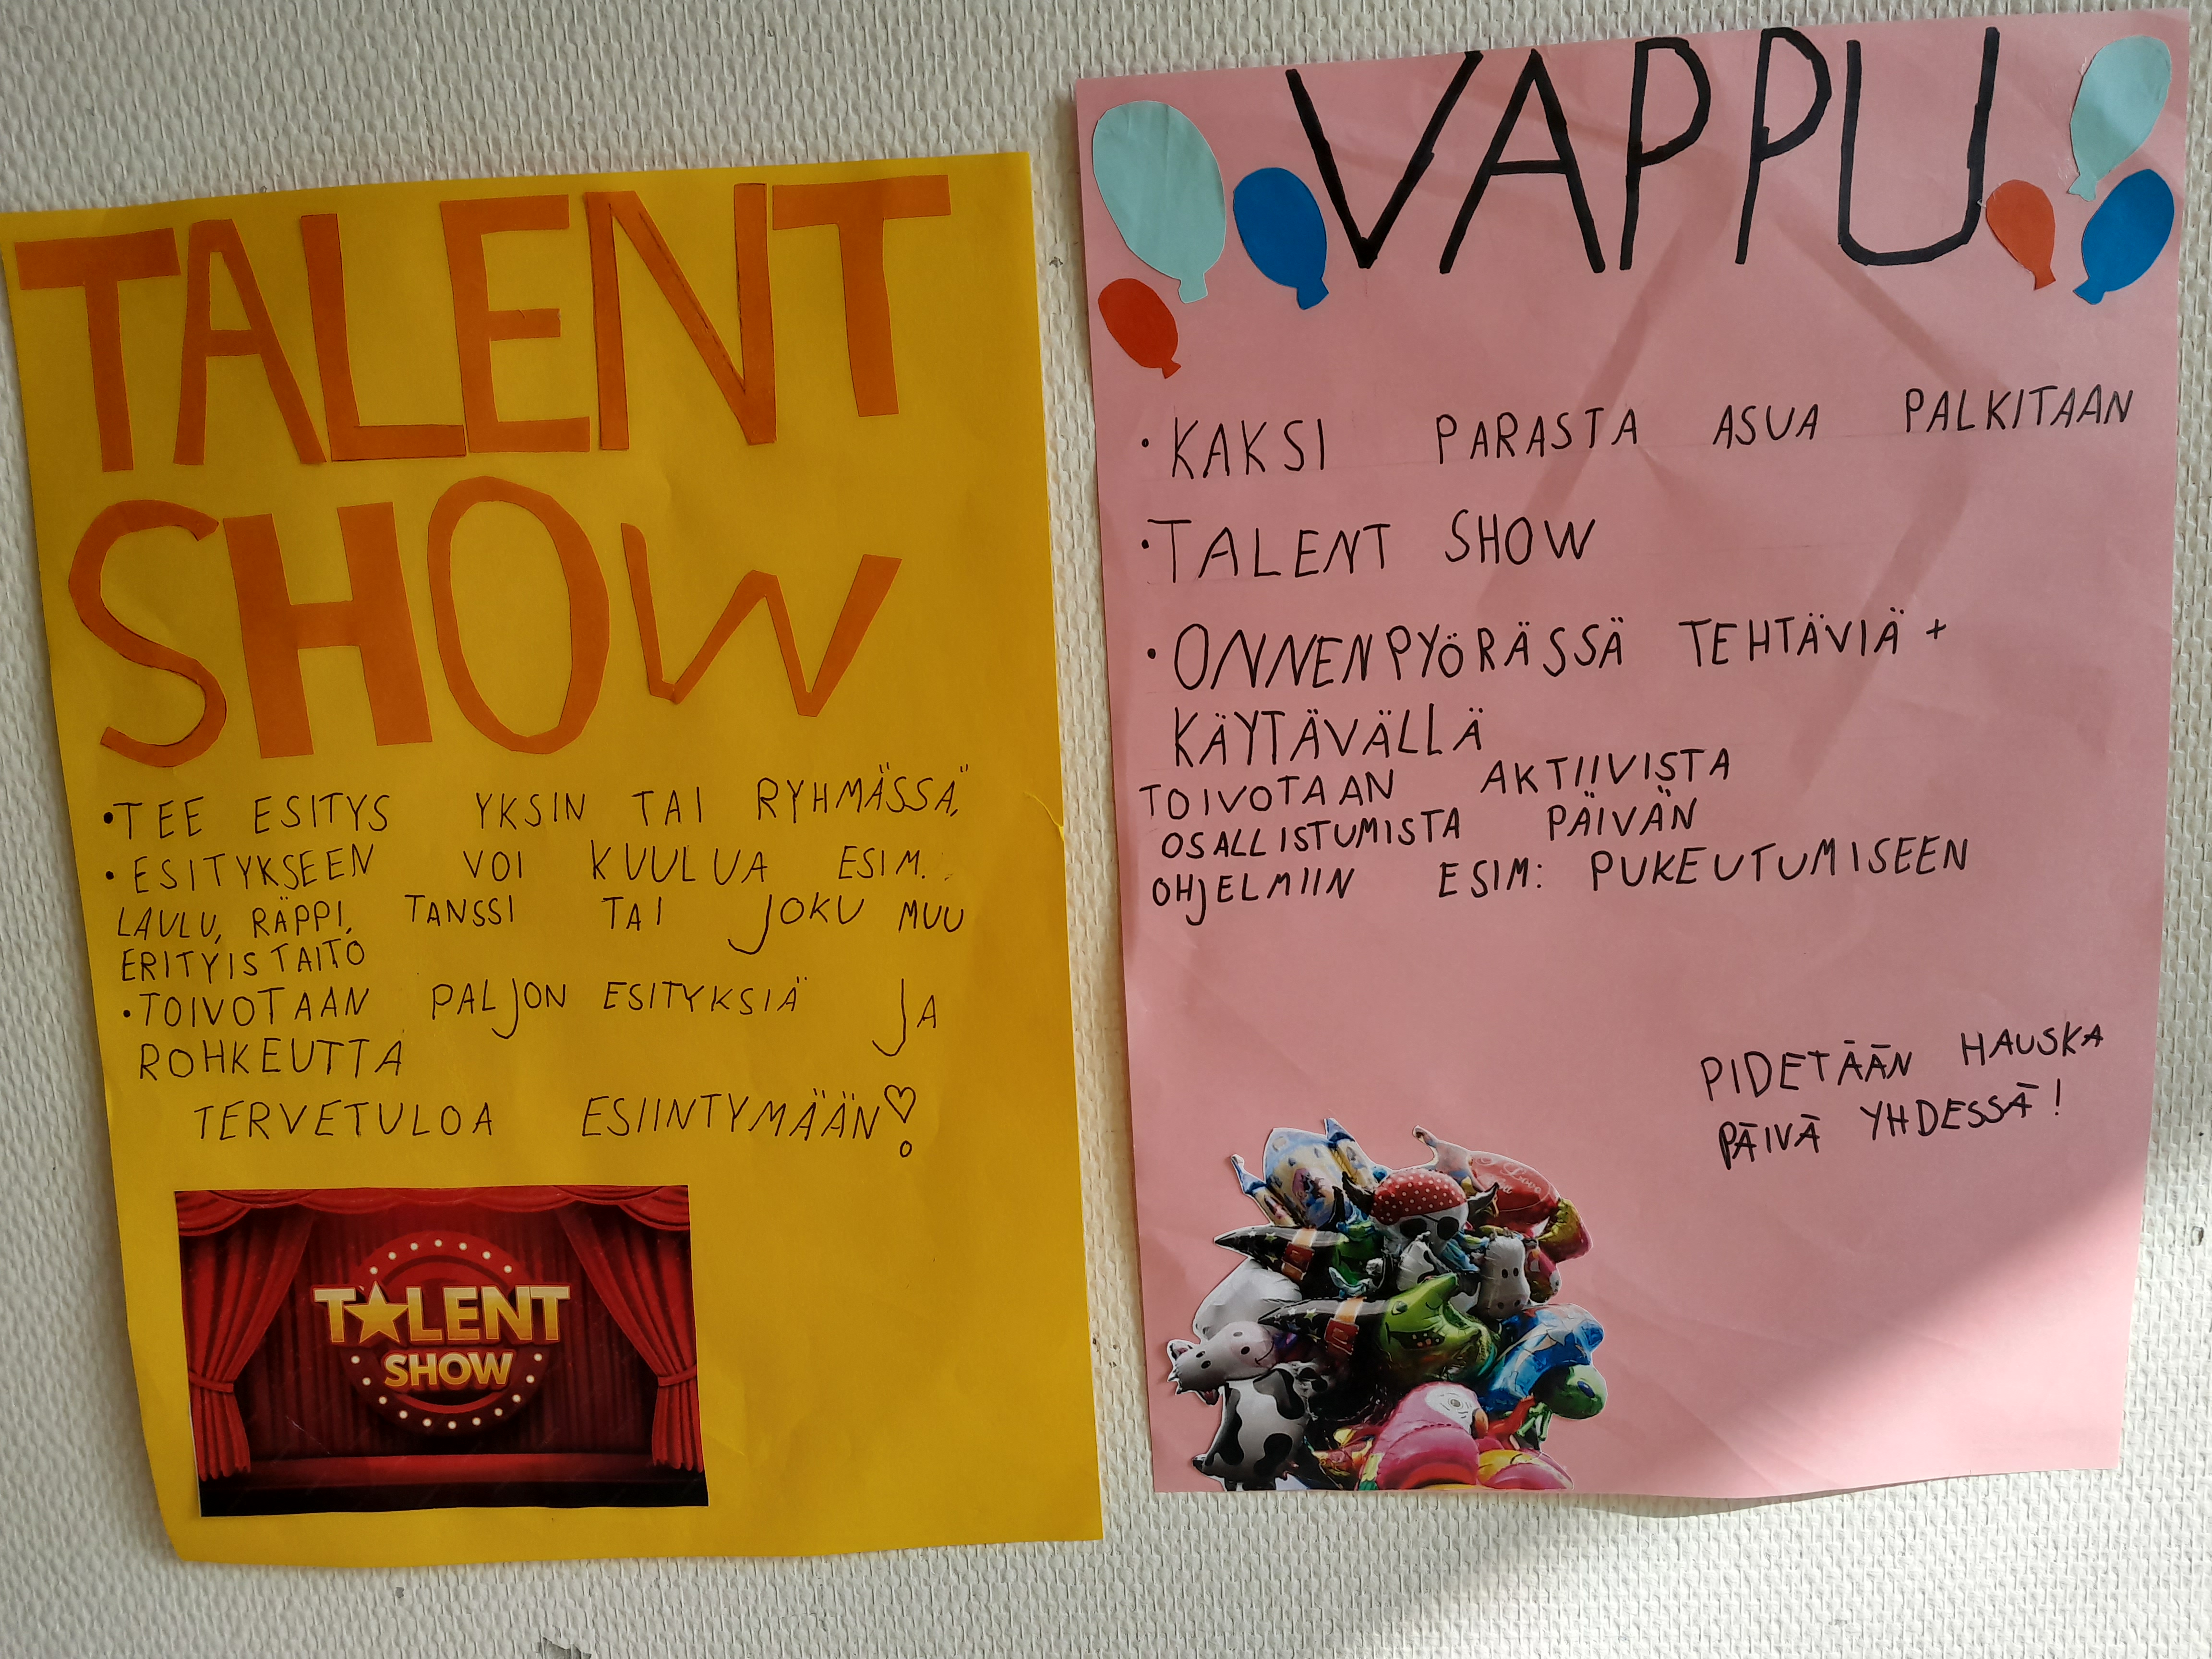 TALENT
SHOW
•TEE ESITYS YKSIN TAI RYHMÄSSÄ
•ESITYKSEEN VOI KUULUA ESIM.
LAULU, RÄPPI, TANSSI TAI JOKU MUU
ERITYISTAITO
•TOIVOTAAN PALJON ESITYKSIÄ JA
ROHKEUTTA
TERVETULOA ESIINTYMÄÄN♡
TALENT
SHOW
VAPPU
•KAKSI PARASTA ASUA PALKITAAN
•TALENT SHOW
•ONNENPYÖRÄSSÄ TEHTÄVIÄ +
KÄYTÄVÄLLÄ
TOIVOTAAN AKTIIVISTA
OSALLISTUMISTA PÄIVÄN
OHJELMIIN ESIM: PUKEUTUMISEEN
PIDETÄÄN HAUSKA
PÄIVÄ YHDESSÄ!